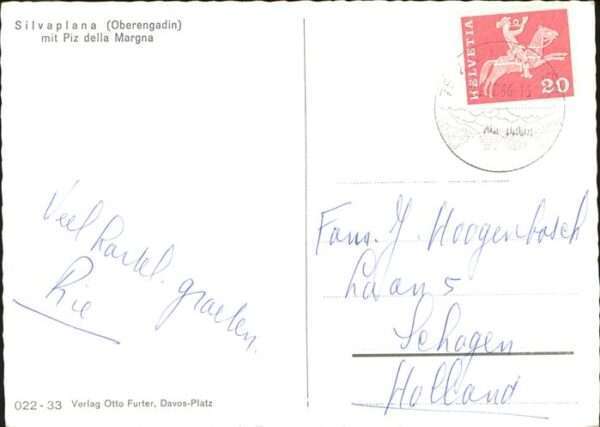 Silvaplana (Oberengadin)
mit Piz della Margna
HELVETIA
20
Veel hartel. groeten.
Rie
Fam. J. Hoogenbosch
Laan 5
Schagen
Holland
022-33 Verlag Otto Furter, Davos-Platz